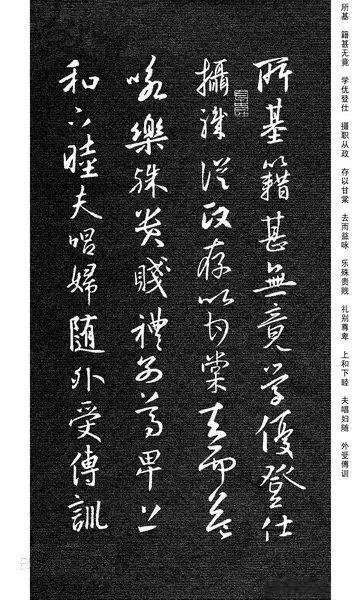 所基 籍甚无竟 学优登仕 摄职从政 存以甘棠 去而益咏 乐殊贵贱 礼别尊卑 上和下睦 夫唱妇随 外受傅训
所基籍甚無竟学優登仕
攝職從政存以甘棠去而益
咏樂殊贵賤禮别尊卑上
和下睦夫唱婦随外受傅訓